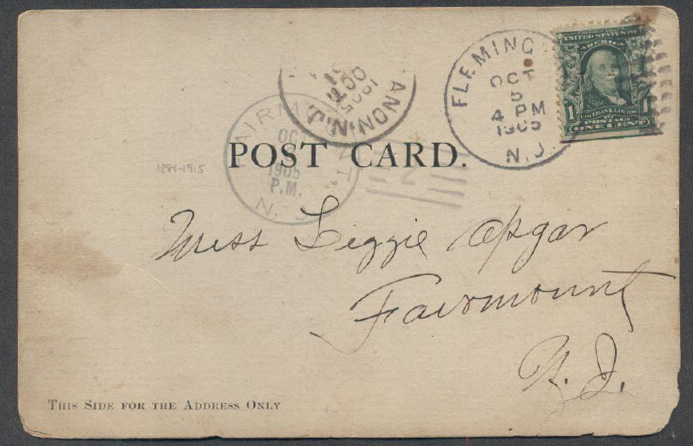 FLEMING
OCT
5
4 PM
1905
N.J.
UNITED STATES OF
AMERICA
1
POSTAGE
ONE CENT
ANON, N.J.
OCT
1905
FAIRMOUNT,
OCT
1905
P.M.
N. J.
POST CARD.
1894-1915
Miss Lizzie Apgar
Fairmount
N. J.
THIS SIDE FOR THE ADDRESS ONLY